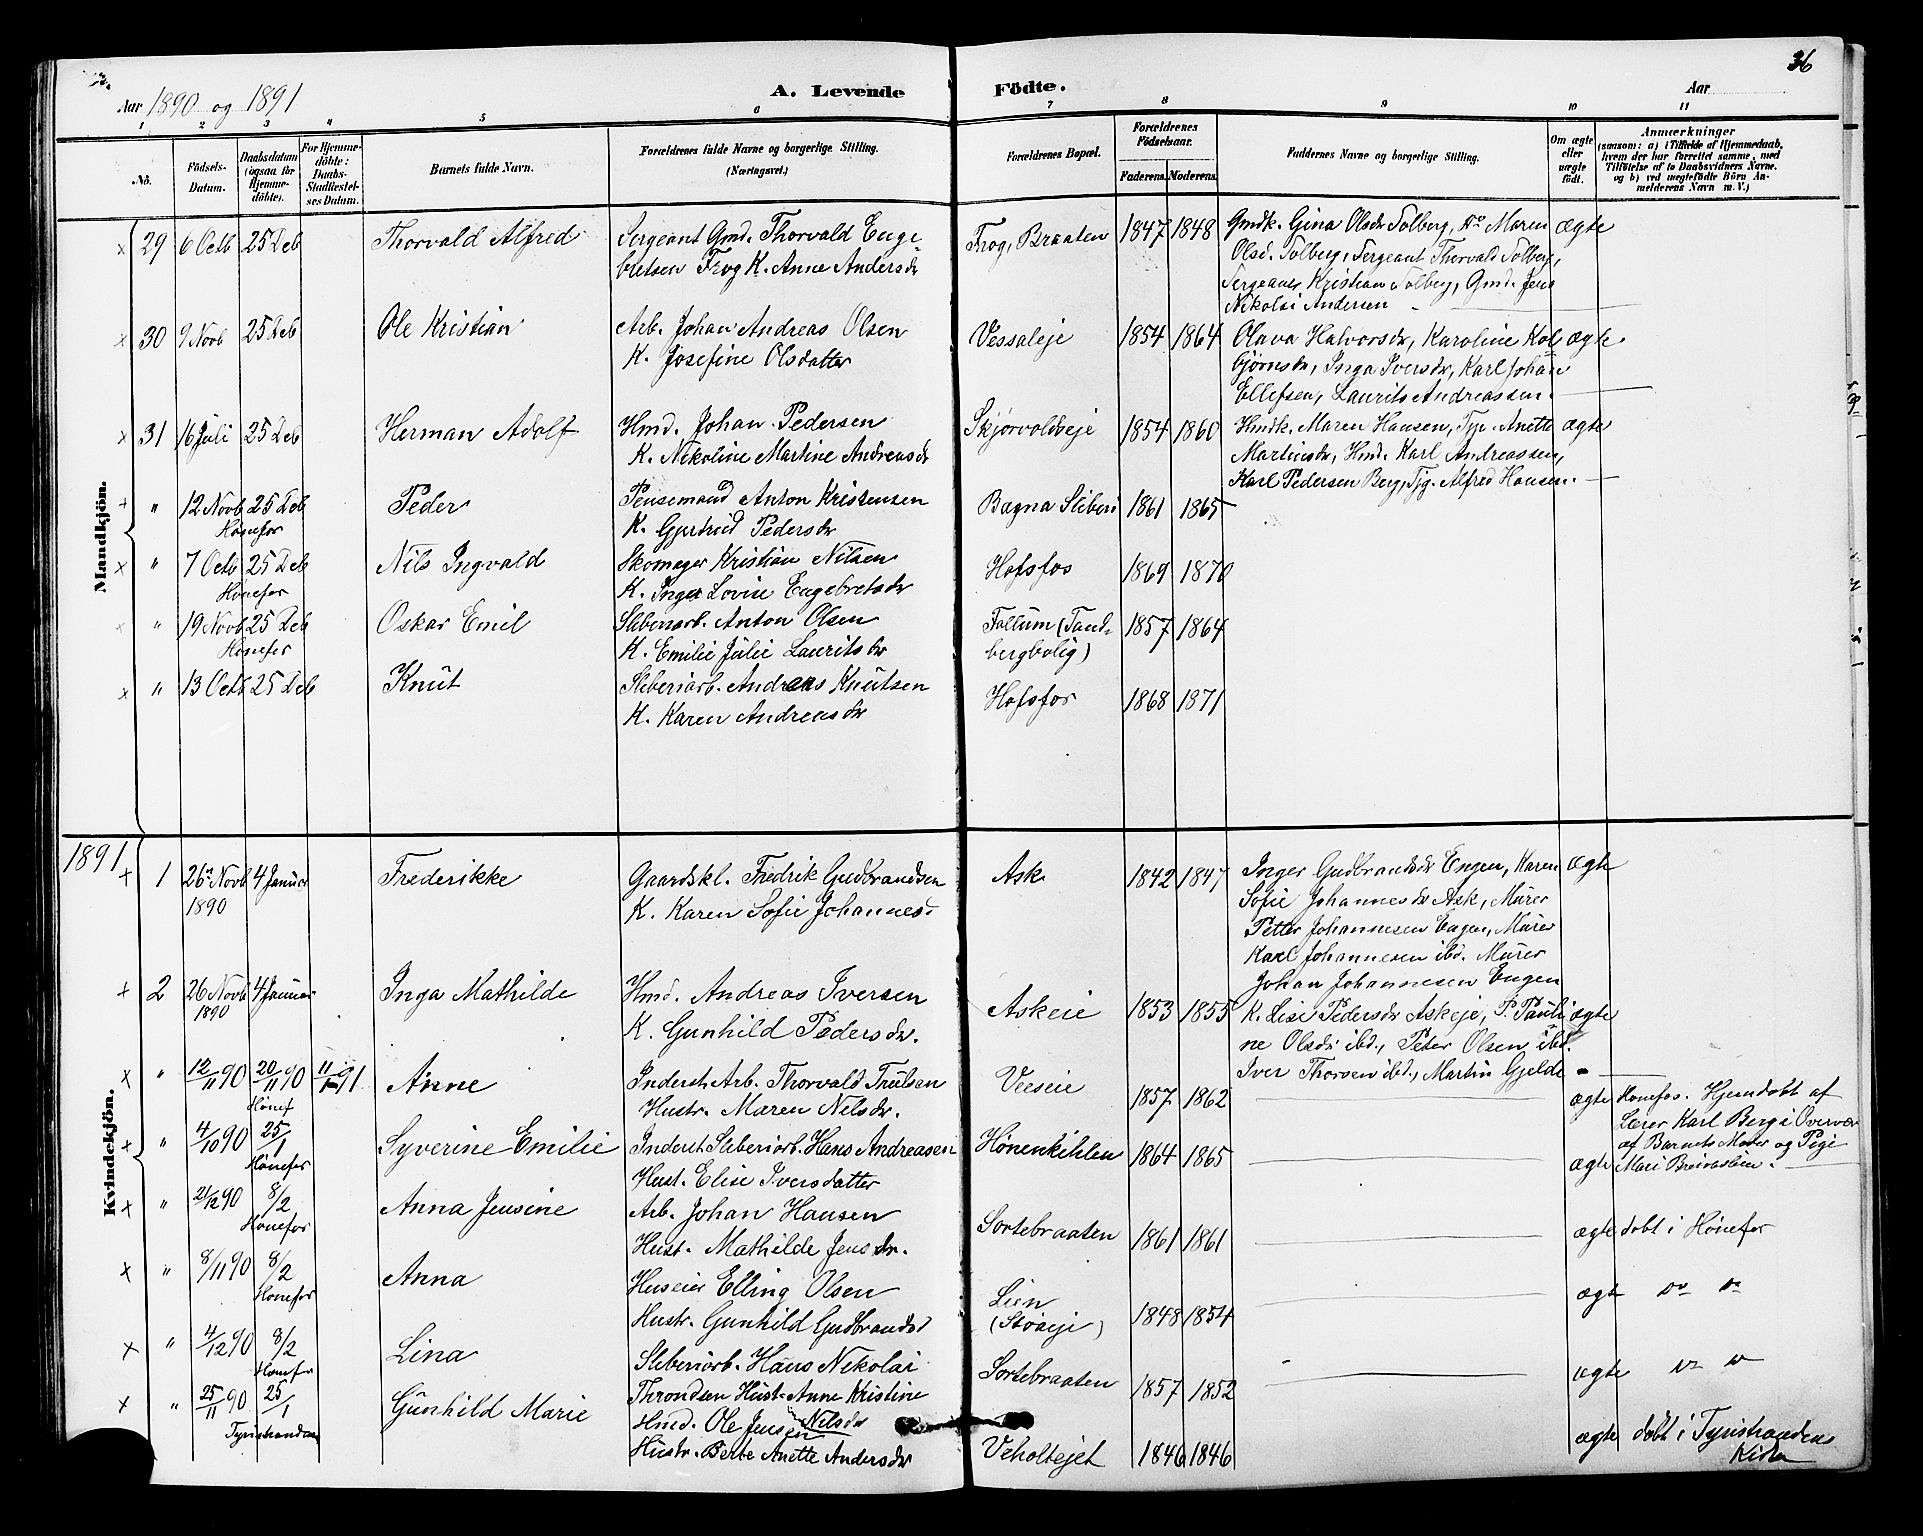 36
Aar 1890 og 1891
A. Levende Födte.
Aar
1 2 3 4 5 6 7 8 9 10 11
No.
Födsels-Datum.
Daabsdatum (ogsaa for Hjemmedöbte).
For Hjemmedöbte: Daabs-Stadfæstelses Datum.
Barnets fulde Navn.
Forældrenes fulde Navne og borgerlige Stilling. (Næringsvei.)
Forældrenes Bopæl.
Forældrenes Födselsaar.
Faderens. Moderens.
Faddernes Navne og borgerlige Stilling.
Om ægte eller uægte födt.
Anmærkninger (saasom: a) i Tilfælde af Hjemmedaab, hvem der har forrettet samme, med Tilföielse af to Daabsvidners Navne. og b) ved uægtefödte Börn Anmelderens Navn m. V.)
Mandkjön.
29 6 Octb 25 Deb Thorvald Alfred Sergeant Gmd. Thorvald Enge- Frog, Braaten 1847 1848 Gmdk. Gina Olsdr Tolberg, Do Maren ægte
bretsen Frog K. Anne Andersdr Olsd. Tolberg, Sergeant Thorvald Tolberg,
Sergeant Kristian Tolberg, Gmd. Jens
Nikolai Andersen
30 9 Novb 25 Deb Ole Kristian Arb. Johan Andreas Olsen Vessaleje 1854 1864 Olava Halvorsdr, Karoline Kol ægte
K. Josefine Olsdatter bjørnsdr, Inga Iversdr, Karl Johan
Ellefsen, Laurits Andreassen.
31 16 Juli 25 Deb Herman Adolf Hmd. Johan Pedersen Skjørvoldeje 1854 1860 Hmdk. Maren Hansen, Tp. Anette ægte
K. Nikoline Martine Andreasdr Martinsdr, Hmd. Karl Andreassen,
Karl Pedersen Berg, Tjg. Alfred Hansen.
" 12 Novb 25 Deb Peder Pensemand Anton Kristensen Bagna Sliberi 1861 1865
Hønefos K. Gjertrud Pedersdr
" 7 Octb 25 Deb Nils Ingvald Skomager Kristian Nilsen Hofsfos 1869 1870
Hønefos K. Inger Lovise Engebretsdr
" 19 Novb 25 Deb Oskar Emil Sliberiarb. Anton Olsen Follum (Tand- 1857 1864
Hønefos K. Emilie Julie Lauritsdr bergbolig)
" 13 Octb 25 Deb Knut Sliberiarb. Andreas Knutsen Hofsfos 1868 1871
K. Karen Andreasdr
1891
Kvindekjön.
1 26 Novb 4 Januar Frederikke Gaardskl. Fredrik Gudbrandsen Ask 1842 1847 Inger Gudbrandsdr Engen, Karen ægte
1890 K. Karen Sofie Johannesd. Sofie Johannesdr Ask, Murer
Petter Johannesen Engen, Murer
Karl Johannesen ibd. Murer
Johan Johannesen Engen
2 26 Novb 4 Januar Inga Mathilde Hmd. Andreas Iversen Askeie 1853 1855 K. Lise Pedersdr Askeje, P. Pauli ægte
1890 K. Gunhild Pedersdr. ne Olsdr ibd., Peter Olsen ibd.
Iver Thorsen ibd., Martin Gjelde
" 12/11 90 20/11 90 11/1 91 Anne Inderst Arb. Thorvald Trulsen Veseie 1857 1862 ægte Hønefos. Hjemdøbt af
Hustr. Maren Nelsdr. Lærer Karl Berg i Overvær
" 4/10 90 25/1 Hønef Syverine Emilie Inderst Sliberiarb. Hans Andreasen Hønenkihlen 1864 1865 ægte af Barnets Moder og Pige
Hønefos Hust. Elise Iversdatter Mari
" 21/12 90 8/2 Anna Jensine Arb. Johan Hansen Sortebraaten 1861 1861 ægte døbt i Hønefos
Hønefos Hust. Mathilde Jensdr.
" 8/11 90 8/2 Anna Huseier Elling Olsen Lien 1848 1854 ægte Do Do
Hønefos Hustr. Gunhild Gudbrandsd (Støaeje)
" 4/12 90 8/2 Lina Sliberiarb. Hans Nikolai Sortebraaten 1857 1852 ægte Do Do
Hønefos Throndsen Hust. Anne Kristine
Nilsdr
" 25/11 90 25/1 Gunhild Marie Hmd. Ole Jensen Veholtejet 1846 1846 ægte døbt i Tyristrandens
Tyristranden Hustr. Berte Anette Andersdr Kirke